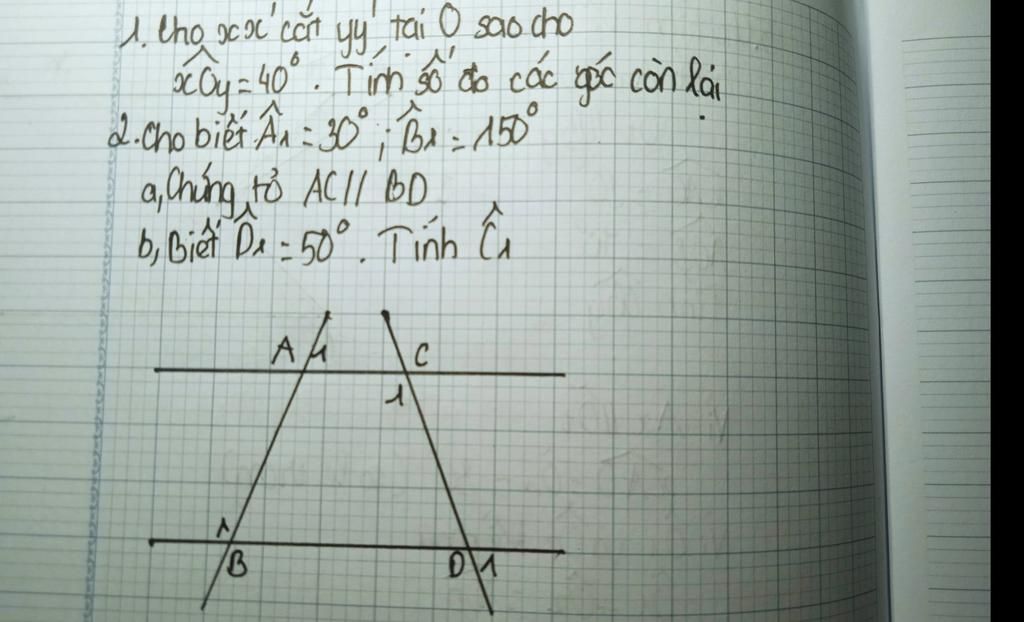 1. Cho xx' cắt yy' tại O sao cho
xÔy = 40°. Tính số đo các góc còn lại
2. Cho biết Â1 = 30°; B̂1 = 150°
a, Chứng tỏ AC // BD
b, Biết D̂1 = 50°. Tính Ĉ1
A 1 C
1
1
B D 1